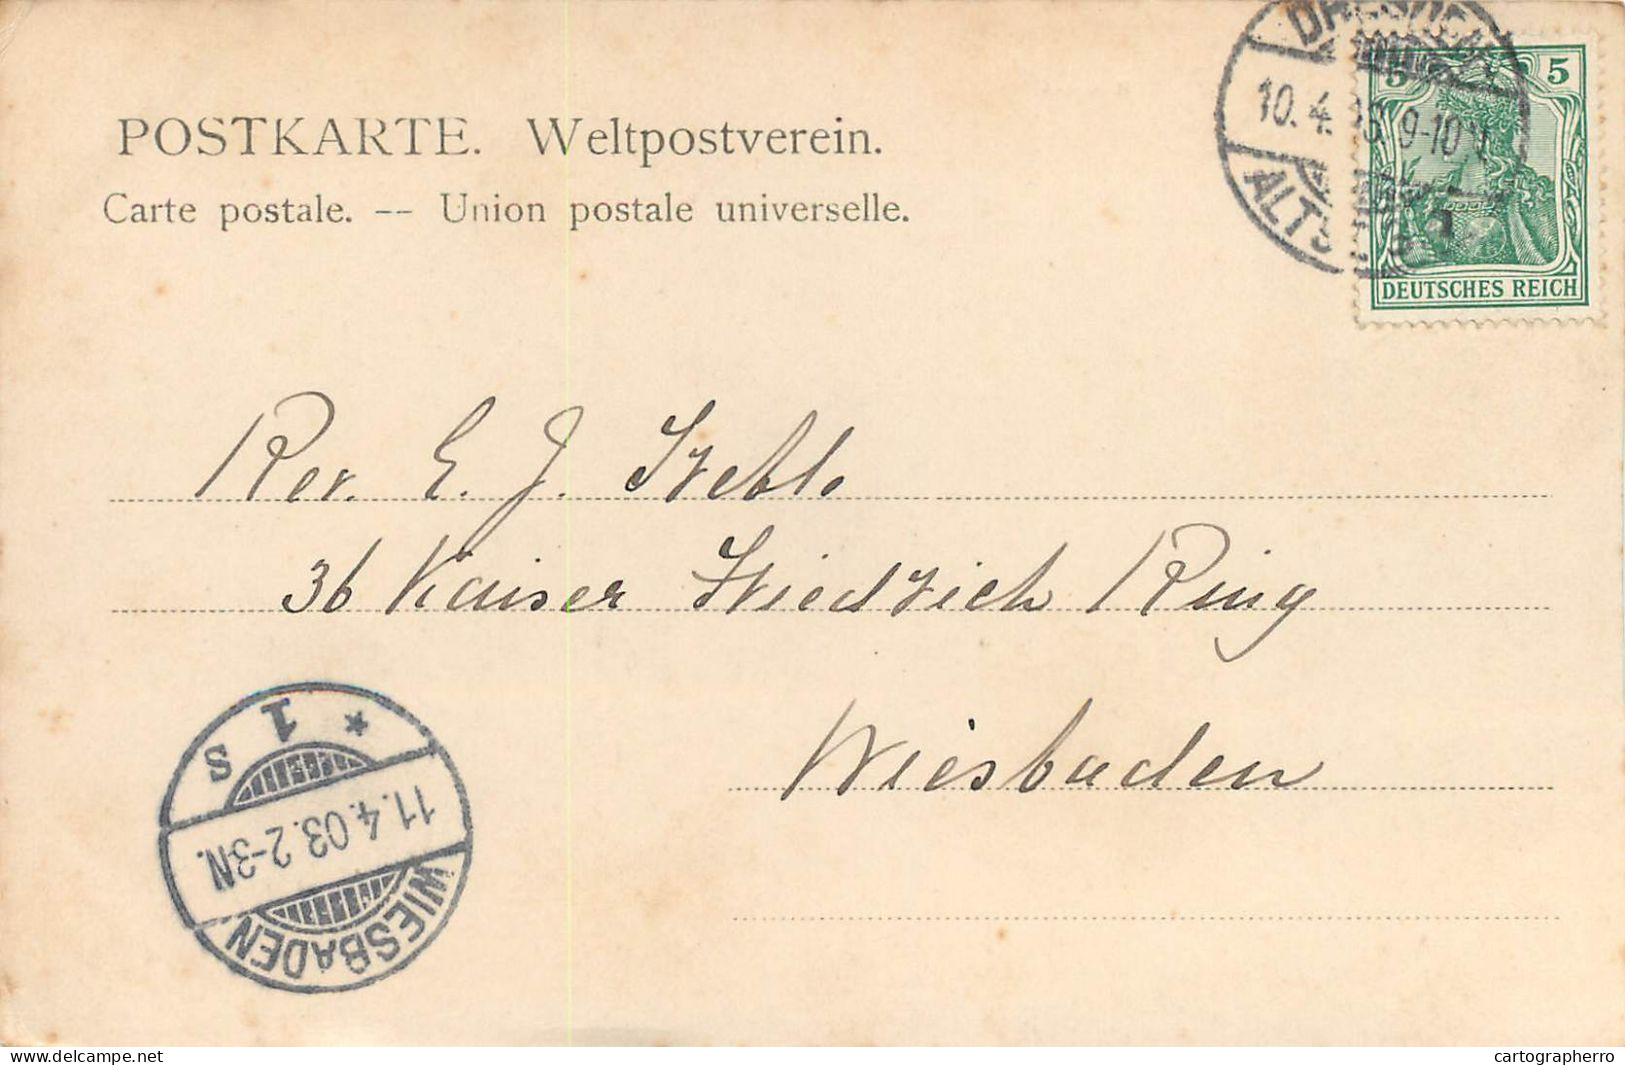 POSTKARTE. Weltpostverein.
Carte postale. -- Union postale universelle.
DRESDEN
10. 4. 03. 9-10 V.
ALTST.
5 5
DEUTSCHES REICH
Rev. E. J.
36 Kaiser Friedrich Ring
Wiesbaden
* 1 s
11. 4. 03. 2-3 N.
WIESBADEN
delcampe.net
cartographerro